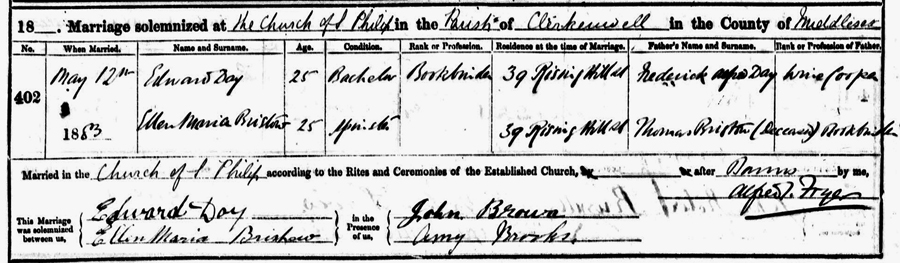 18 . Marriage solemnized at The Church of S Philip in the Parish of Clerkenwell in the County of Middlesex
No. When Married. Name and Surname. Age. Condition. Rank or Profession. Residence at the time of Marriage. Father's Name and Surname. Rank or Profession of Father.
402 May 12th Edward Day 25 Bachelor Bookbinder 39 Rising Hill St Frederick Day Wine Cooper
1883 Ellen Maria Bristow 25 Spinster 39 Rising Hill St Thomas Bristow (Deceased) Bookbinder
Married in the Church of S Philip according to the Rites and Ceremonies of the Established Church, by or after Banns by me,
Alfred
This Marriage was solemnized between us, Edward Day in the Presence of us, John Brown
Ellen Maria Bristow Amy Brooks